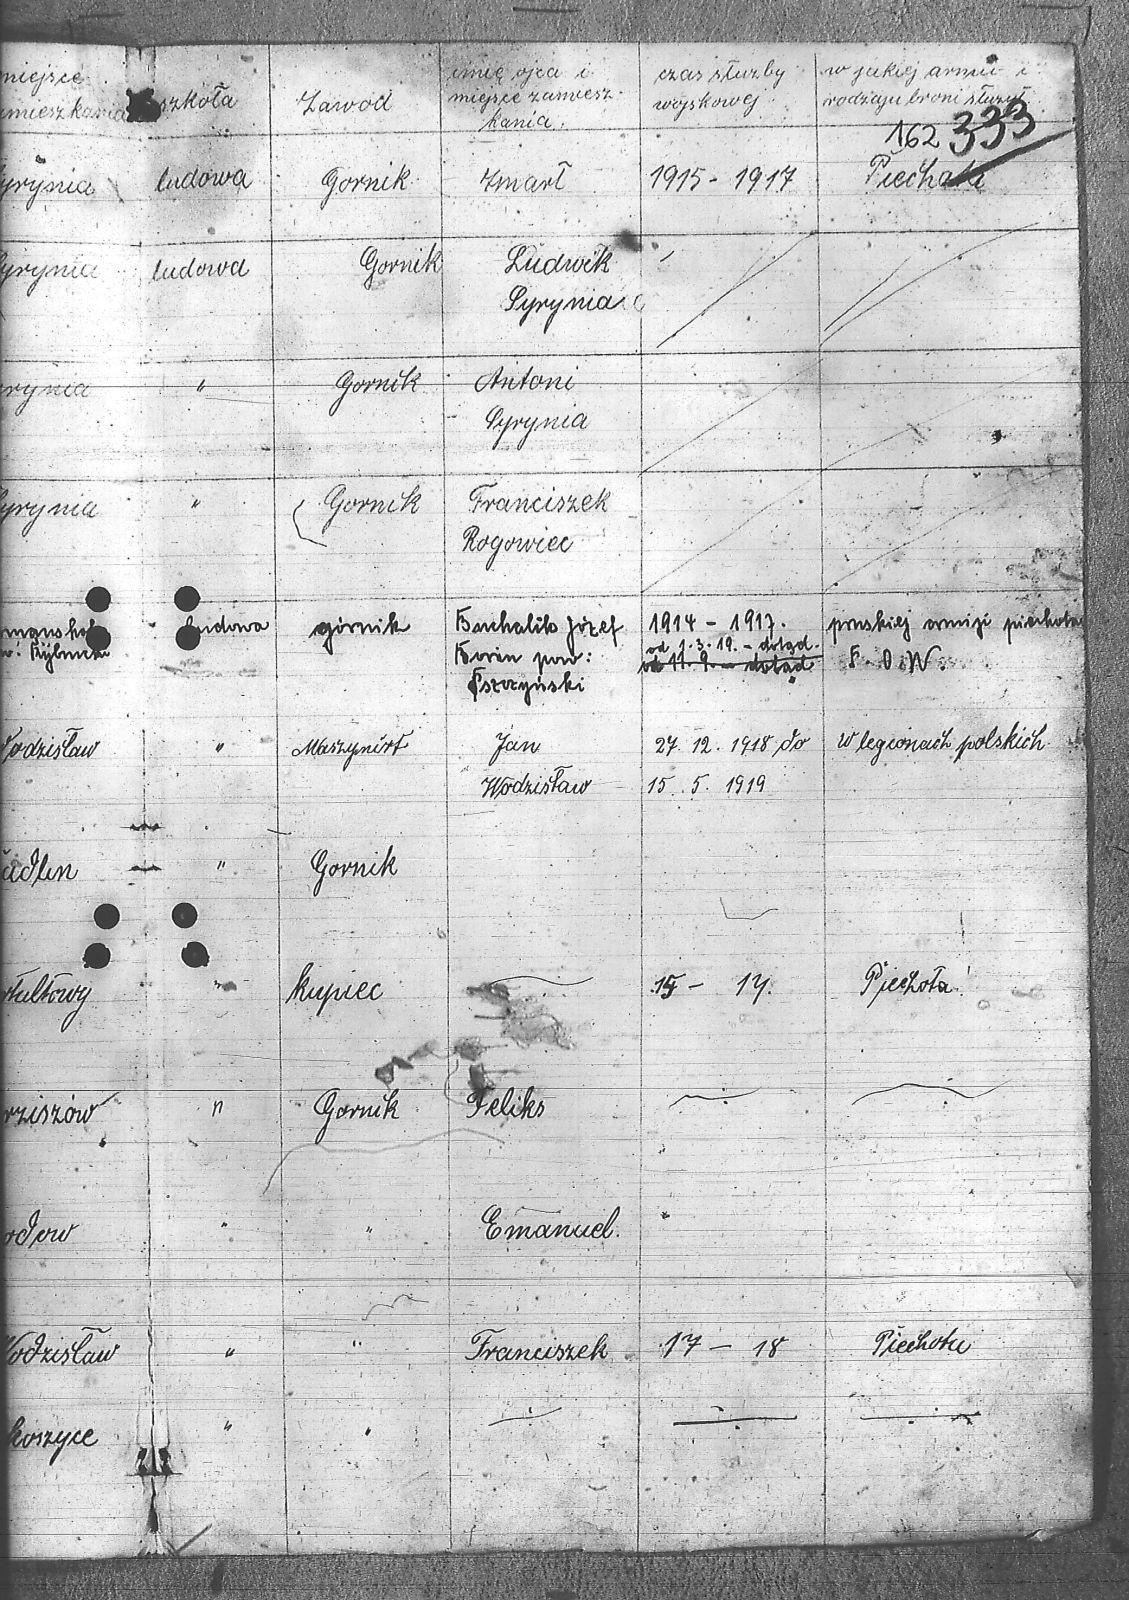 miejsce zamieszkania szkoła Zawód imię ojca i miejsce zamiesz- kania. czas służby wojskowej. w jakiej armii i rodzaju broni służył
162 333
Syrynia ludowa Gornik Zmarł 1915 - 1917 Piechota
Syrynia ludowa Gornik Ludwik
Syrynia
Syrynia " Gornik Antoni
Syrynia
Syrynia " Gornik Franciszek
Rogowiec
ludowa górnik Józef 1914 - 1917. pruskiej armji piechota
pow: Rybnik pow: od 1.3.19. - dotąd. P.O.W.
Pszczyński od 11.9. - dotąd
Wodzisław " Maszynist Jan 27. 12. 1918 do w legionach polskich
Wodzisław 15. 5. 1919
adlin " Gornik
ułtowy " kupiec 15 - 17. Piechota
rziszów n Gornik Feliks
odow " " Emanuel.
Wodzisław " " Franciszek 17 - 18 Piechota
koszyce " "